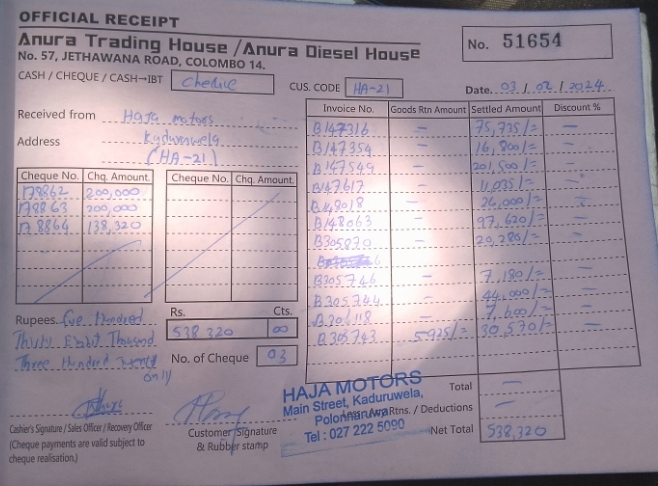 OFFICIAL RECEIPT
Anura Trading House / Anura Diesel House
No. 57, JETHAWANA ROAD, COLOMBO 14.
No. 51654
CASH / CHEQUE / CASH→IBT Cheque
CUS. CODE HA-21
Date. 03/02/2024
Received from Haja motors
Address Kyduruwela
(HA-21)
Cheque No. Chq. Amount. Cheque No. Chq. Amount.
178862 200,000
178863 200,000
178864 138,320
Invoice No. Goods Rtn Amount Settled Amount Discount %
B147316 — 75,735/= —
B147354 — 16,800/= —
B147549 — 201,500/= —
B147617 — 11,035/= —
B148018 — 26,000/=
B148063 — 97,620/= —
B305870 — 20,280/= —
B305746 — 7,180/= —
B305744 — 44,000/= —
— 7,600/= —
B305743 5925/= 30,570/= —
Rupees. Five Hundred
Thirty Eight Thousand
Three Hundred twenty
only
Rs. Cts.
538,320 00
No. of Cheque 03
Total —
Rtns. / Deductions —
Net Total 538,320
HAJA MOTORS
Main Street, Kaduruwela,
Polonnaruwa
Tel : 027 222 5090
Cashier's Signature / Sales Officer / Recovery Officer
(Cheque payments are valid subject to
cheque realisation.)
Customer Signature
& Rubber stamp